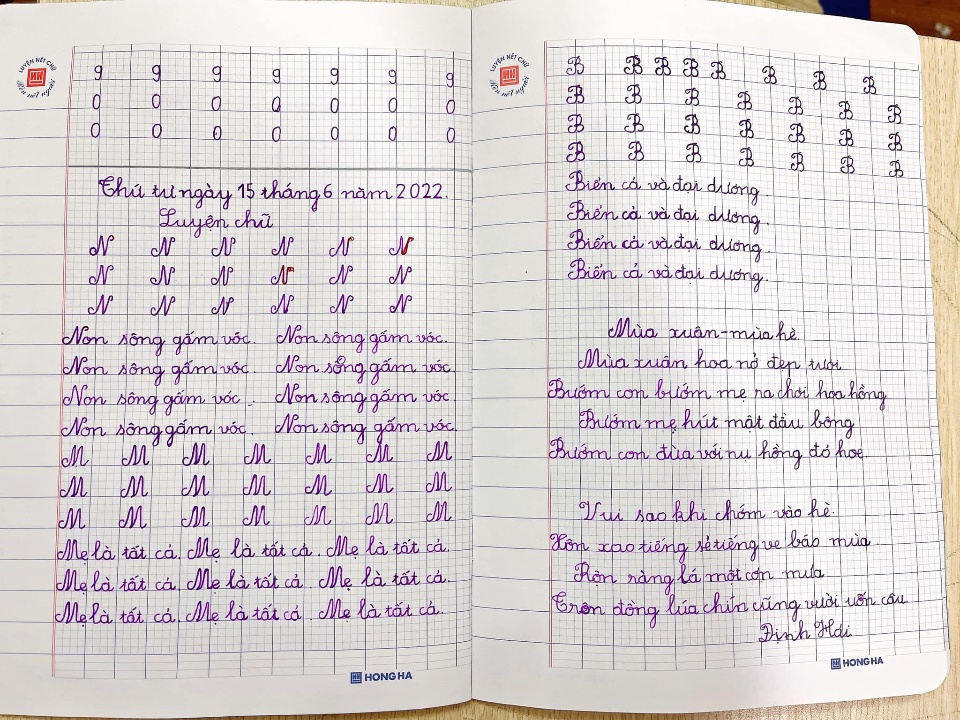 LUYỆN NÉT CHỮ
RÈN NẾT NGƯỜI
9 9 9 9 9 9 9
0 0 0 0 0 0 0
0 0 0 0 0 0 0
Thứ tư ngày 15 tháng 6 năm 2022.
Luyện chữ
N N N N N N
N N N N N N
N N N N N N
Non sông gấm vóc. Non sông gấm vóc.
Non sông gấm vóc. Non sông gấm vóc.
Non sông gấm vóc. Non sông gấm vóc.
Non sông gấm vóc. Non sông gấm vóc.
M M M M M M M
M M M M M M M
M M M M M M M
Mẹ là tất cả. Mẹ là tất cả. Mẹ là tất cả.
Mẹ là tất cả. Mẹ là tất cả. Mẹ là tất cả.
Mẹ là tất cả. Mẹ là tất cả. Mẹ là tất cả.
HONG HA
LUYỆN NÉT CHỮ
RÈN NẾT NGƯỜI
B B B B B B B B
B B B B B B B
B B B B B B B
B B B B B B B
Biển cả và đại dương.
Biển cả và đại dương.
Biển cả và đại dương.
Biển cả và đại dương.
Mùa xuân-mùa hè.
Mùa xuân hoa nở đẹp tươi
Bướm con bướm mẹ ra chơi hoa hồng
Bướm mẹ hút mật đầu bông
Bướm con đùa với nụ hồng đỏ hoe.
Vui sao khi chớm vào hè.
Xôn xao tiếng sẻ tiếng ve báo mùa
Rộn ràng là một cơn mưa
Trên đồng lúa chín cũng vười uốn câu
Định Hải.
HONG HA